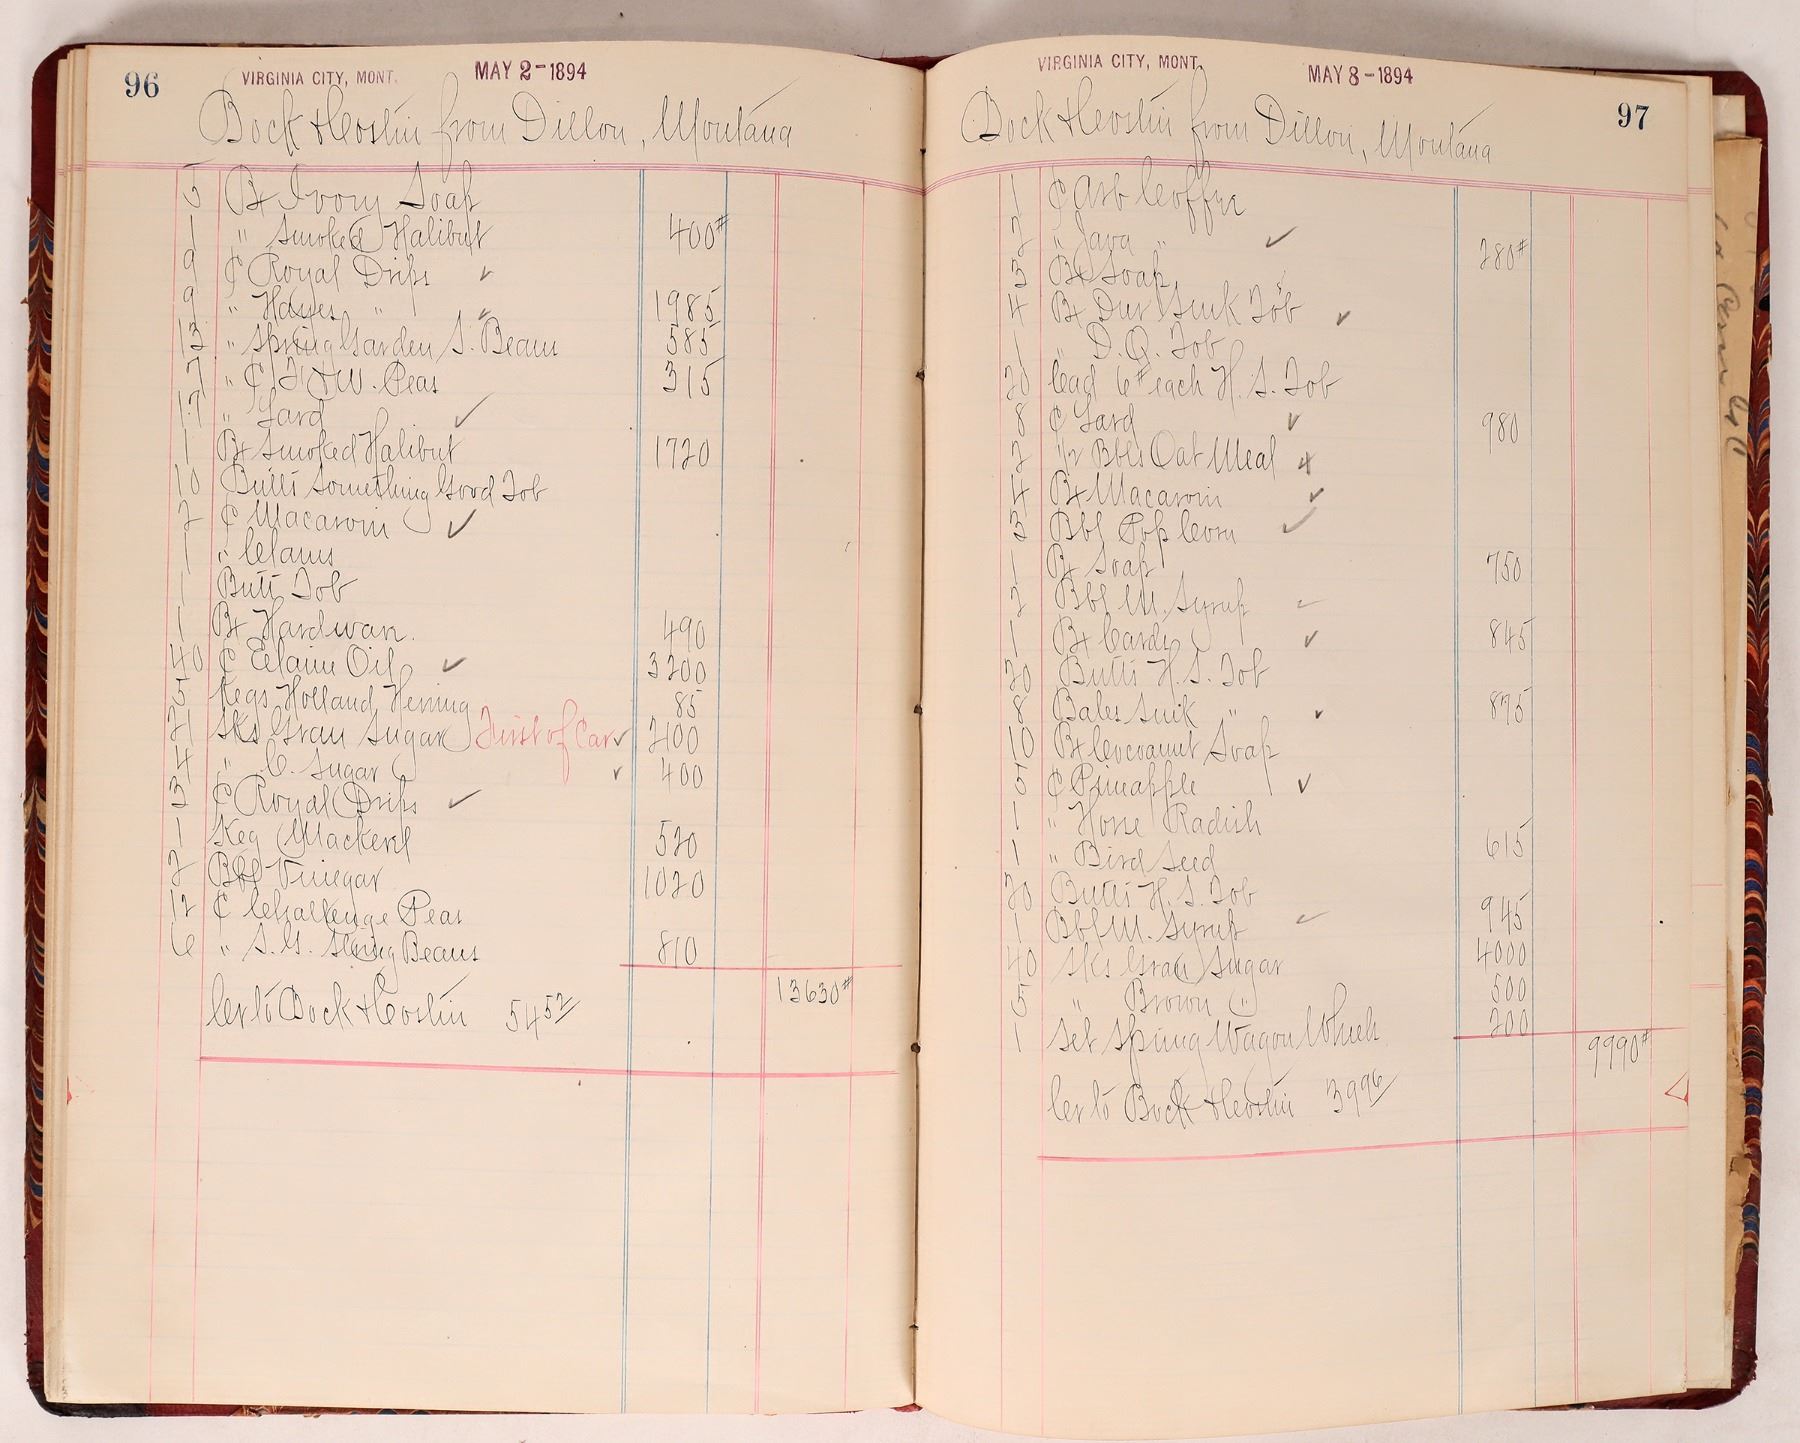 96 VIRGINIA CITY, MONT. MAY 2-1894
Bock & Costin from Dillon, Montana
5 Bx Ivory Soap
1 " Smoked Halibut 400#
9 ¢ Royal Drips ✓
9 " Hayes " ✓ 1985
13 " Spring Garden S. Beans 585
7 " ¢ F & W. Peas 315
17 " Lard ✓
1 Bx Smoked Halibut 1720
10 Butts Something Good Tob
2 ¢ Macaroni ✓
1 " Clams
1 Butt Tob
1 Bx Hardware. 490
40 ¢ Elaine Oil ✓ 3200
5 Kegs Holland Herring 85
21 Sks Gran Sugar First of Car ✓ 2100
4 " C. Sugar ✓ 400
3 ¢ Royal Drips ✓
1 Keg Mackerel 520
2 Bbl Vinegar 1020
12 ¢ Challenge Peas
6 " S. G. String Beans 810
13630#
Cr to Bock & Costin 54 52
VIRGINIA CITY, MONT. MAY 8-1894 97
Bock & Costin from Dillon, Montana
1 ¢ Arb Coffee
2 " Java " ✓ 280#
3 Bx Soap
4 Bx Dur Smk Tob ✓
1 " D. Q. Tob
20 Cad 6# each H. S. Tob
8 ¢ Lard ✓ 980
2 1/2 Bbls Oat Meal x
4 Bx Macaroni ✓
3 Bbl Pop Corn ✓
1 Bx Soap 750
2 Bbl M. Syrup ✓
1 Bx Cards ✓ 845
20 Butts H. S. Tob
8 Bales Smk " ✓ 875
10 Bx Cocoanut Soap
5 ¢ Pineapple ✓
1 " Horse Radish
1 " Bird Seed 615
20 Butts H. S. Tob
1 Bbl M. Syrup ✓ 945
40 Sks Gran Sugar 4000
5 " Brown " 500
1 Set Spring Wagon Wheels 200
9990#
Cr to Bock & Costin 39 96